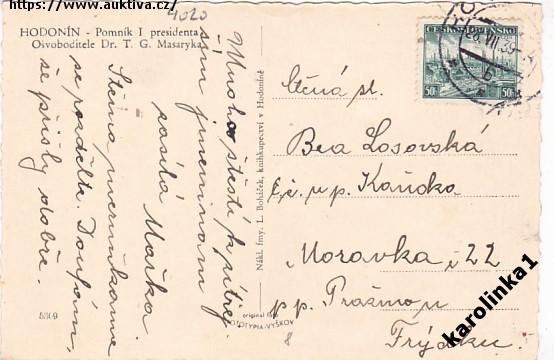 https://www.auktiva.cz/
4020
HODONÍN - Pomník I presidenta
Osvoboditele Dr. T. G. Masaryka
Mnoho štěstí k zítřej
ším jmeninám
zasílá Mařka
S těma meruňkama
se rozdělte. Doufám,
že přišly dobře.
5309
Nákl. fmy. L. Boháček, knihkupectví v Hodoníně
original foto
FOTOTYPIA-VYŠKOV
8
ČESKOSLOVENSKO
50h 50h
26 VII 39
Ctěná sl.
Bea Losovská
u p. Kaňdka
Moravka č 22
p p. Pražmo u
Frýdku.
karolinka1